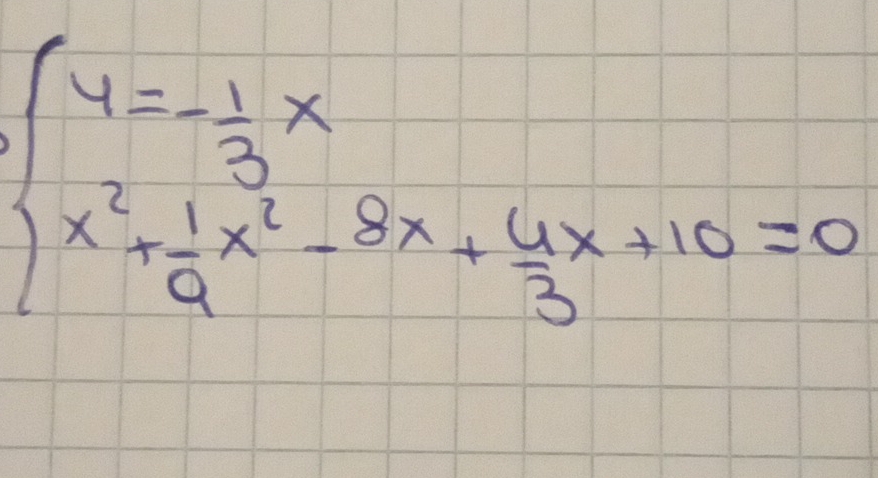 y = -1/3 x
x² + 1/9 x² - 8x + 4/3 x + 10 = 0